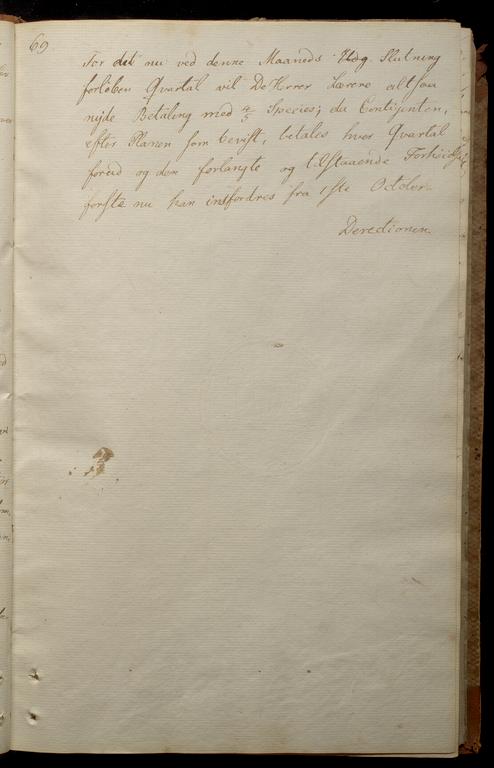 69
For det nu ved denne Maaneds Udg. Slutning
forløben Qvartal vil De Herrer Lærere altsaa
nyde Betaling med 4/5 Species; da Contingenten,
efter Planen som bevist, betales hver Qvartal
forud og den forlangte og tilstaaende
første nu kan indfordres fra 1ste October.
Derectionen.